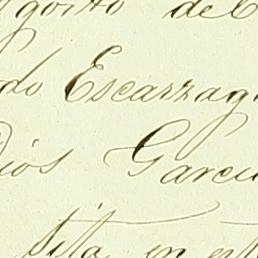 Agosto de
do Escarzag
Dios Garci
sita en est